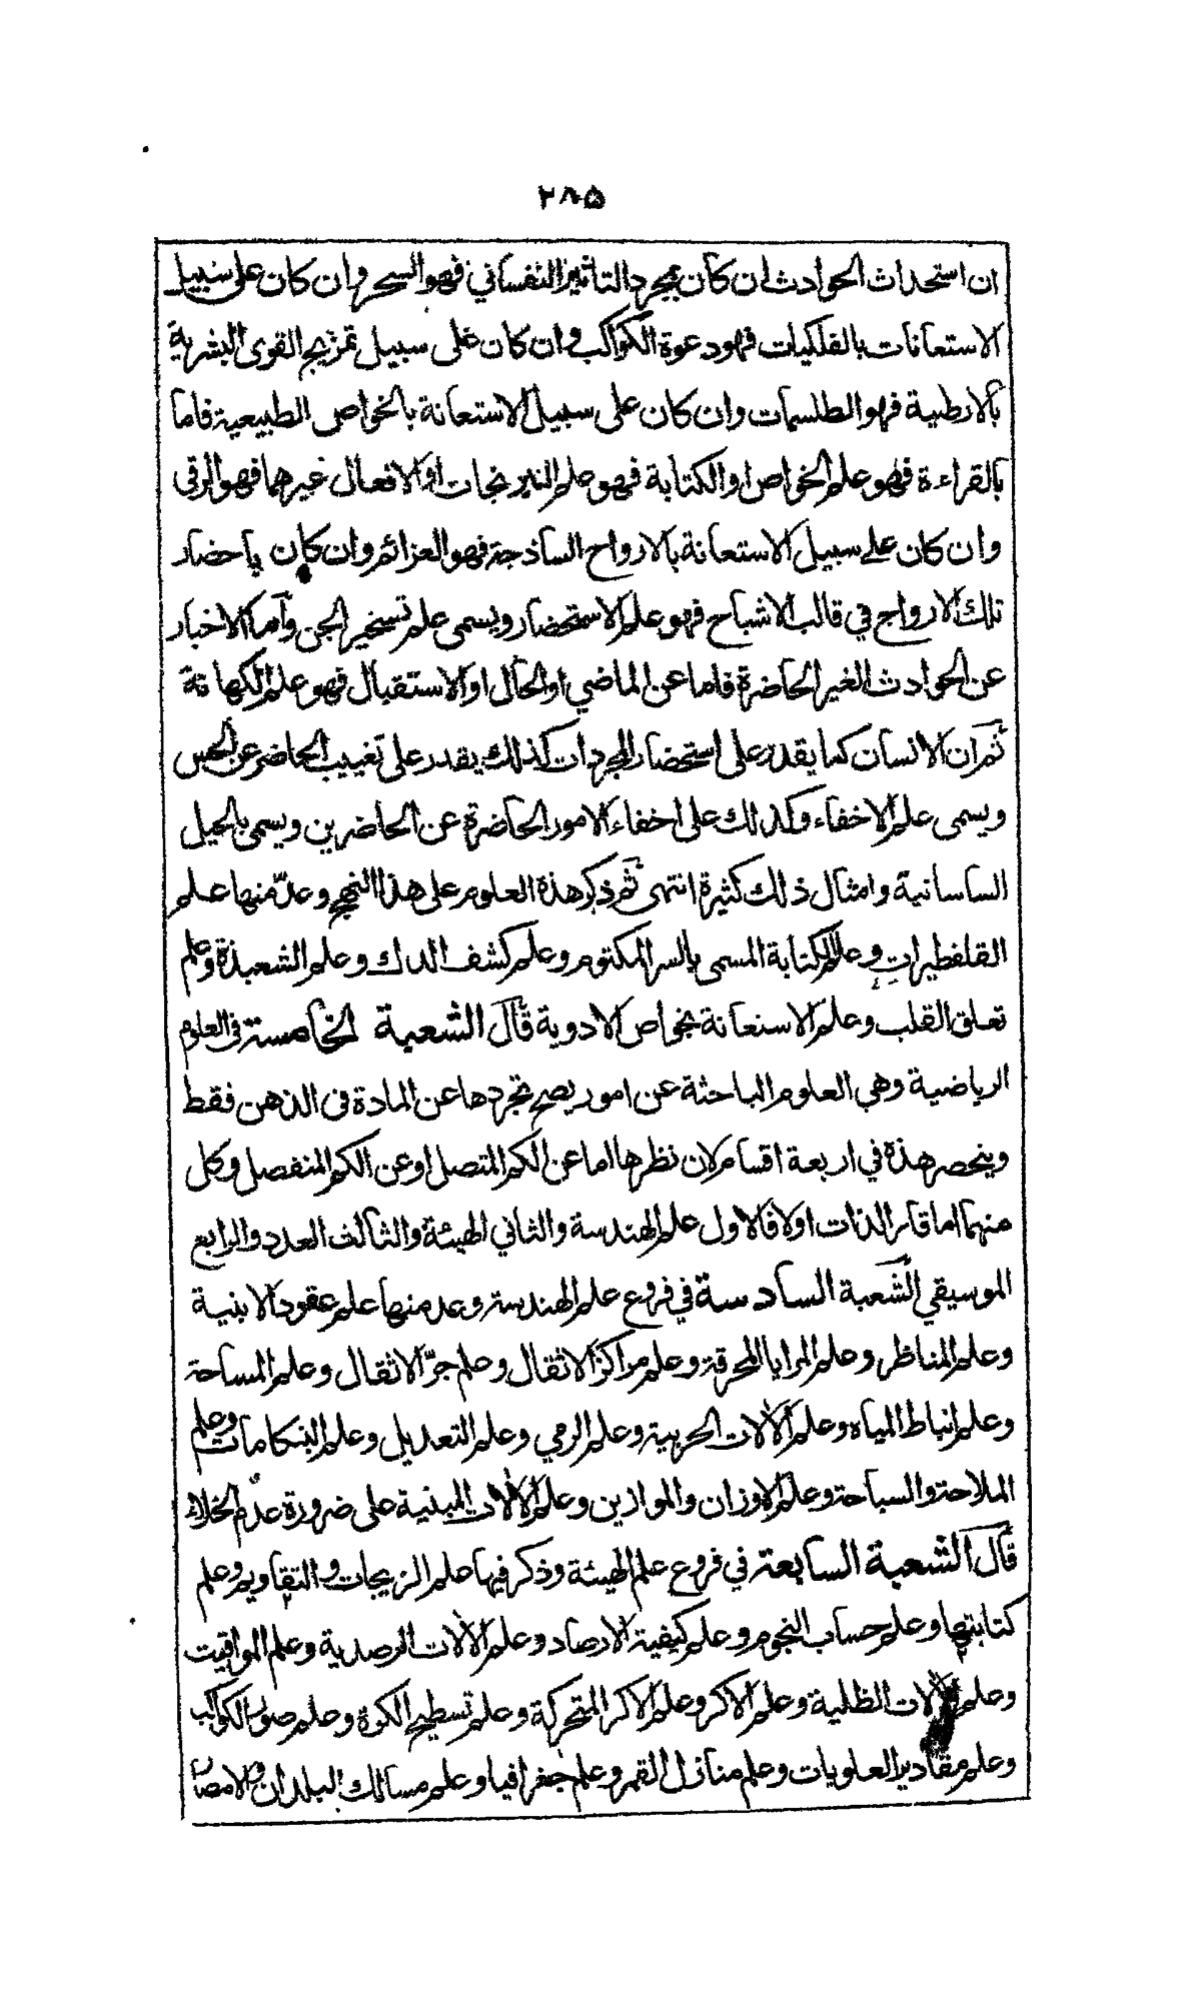 ۲۸۵
ان استحداث الحوادث ان كان بمجرد التاثير النفساني فهو السحر وان كان على سبيل
الاستعانات بالفلكيات فهو دعوة الكواكب وان كان على سبيل تمزيج القوى البشرية
بالارضية فهو الطلسمات وان كان على سبيل الاستعانة بالخواص الطبيعية فاما
بالقراءة فهو علم الخواص او الكتابة فهو علم النيرنجات او الافعال غيرهما فهو الرقى
وان كان على سبيل الاستعانة بالارواح الساذجة فهو العزائم وان كان باحضار
تلك الارواح في قالب الاشباح فهو علم الاستحضار ويسمى علم تسخير الجن وأما الاخبار
عن الحوادث الغير الحاضرة فاما عن الماضي او الحال او الاستقبال فهو علم الكهانة
ثم ان الانسان كما يقدر على استحضار المجردات كذلك يقدر على تغييب الحاضر عن الحس
ويسمى علم الاخفاء وكذلك على اخفاء الامور الحاضرة عن الحاضرين ويسمى بالحيل
الساسانية وامثال ذلك كثيرة انتهى ثم ذكر هذه العلوم على هذا النهج وعدّ منها علم
القلفطيرات وعلم الكتابة المسمى بالسر المكتوم وعلم كشف الدك وعلم الشعبذة وعلم
تعلق القلب وعلم الاستعانة بخواص الادوية قال الشعبة الخامسة في العلوم
الرياضية وهي العلوم الباحثة عن امور يصح تجردها عن المادة في الذهن فقط
وينحصر هذه في اربعة اقسام لان نظرها اما عن الكم المتصل او عن الكم المنفصل وكل
منهما اما قار الذات اولا فالاول علم الهندسة والثاني الهيئة والثالث العدد والرابع
الموسيقي الشعبة السادسة في فروع علم الهندسة وعد منها علم عقود الابنية
وعلم المناظر وعلم المرايا المحرقة وعلم مراكز الاثقال وعلم جرّ الاثقال وعلم المساحة
وعلم انباط المياه وعلم الآلات الحربية وعلم الرمي وعلم التعديل وعلم البنكامات وعلم
الملاحة والسباحة وعلم الاوزان والموازين وعلم الآلات المبنية على ضرورة عدم الخلاء
قال الشعبة السابعة في فروع علم الهيئة وذكر فيها علم الزيجات والتقاويم وعلم
كتابتها وعلم حساب النجوم وعلم كيفية الارصاد وعلم الآلات الرصدية وعلم المواقيت
وعلم الآلات الظلية وعلم الاكر وعلم الاكر المتحركة وعلم تسطيح الكرة وعلم صور الكواكب
وعلم مقادير العلويات وعلم منازل القمر وعلم جغرافيا وعلم مسالك البلدان والامصار